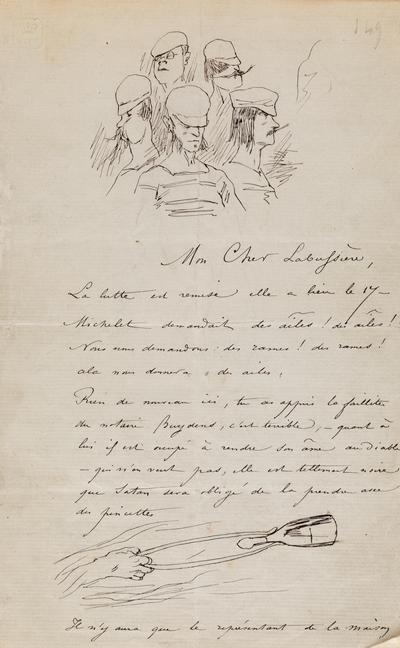 149
Mon Cher Labussière,
La lutte est remise elle a lieu le 17 —
Michelet demandait des aîles ! des aîles !
Nous nous demandons : des rames ! des rames !
cela nous donnera des ailes.
Rien de nouveau ici, tu as appris la faillite
du notaire Buydens, c'est terrible, — quant à
lui il est occupé à rendre son âme au diable
— qui n'en veut pas, elle est tellement noire
que Satan sera obligé de la prendre avec
des pincettes
Il n'y aura que le représentant de la maison